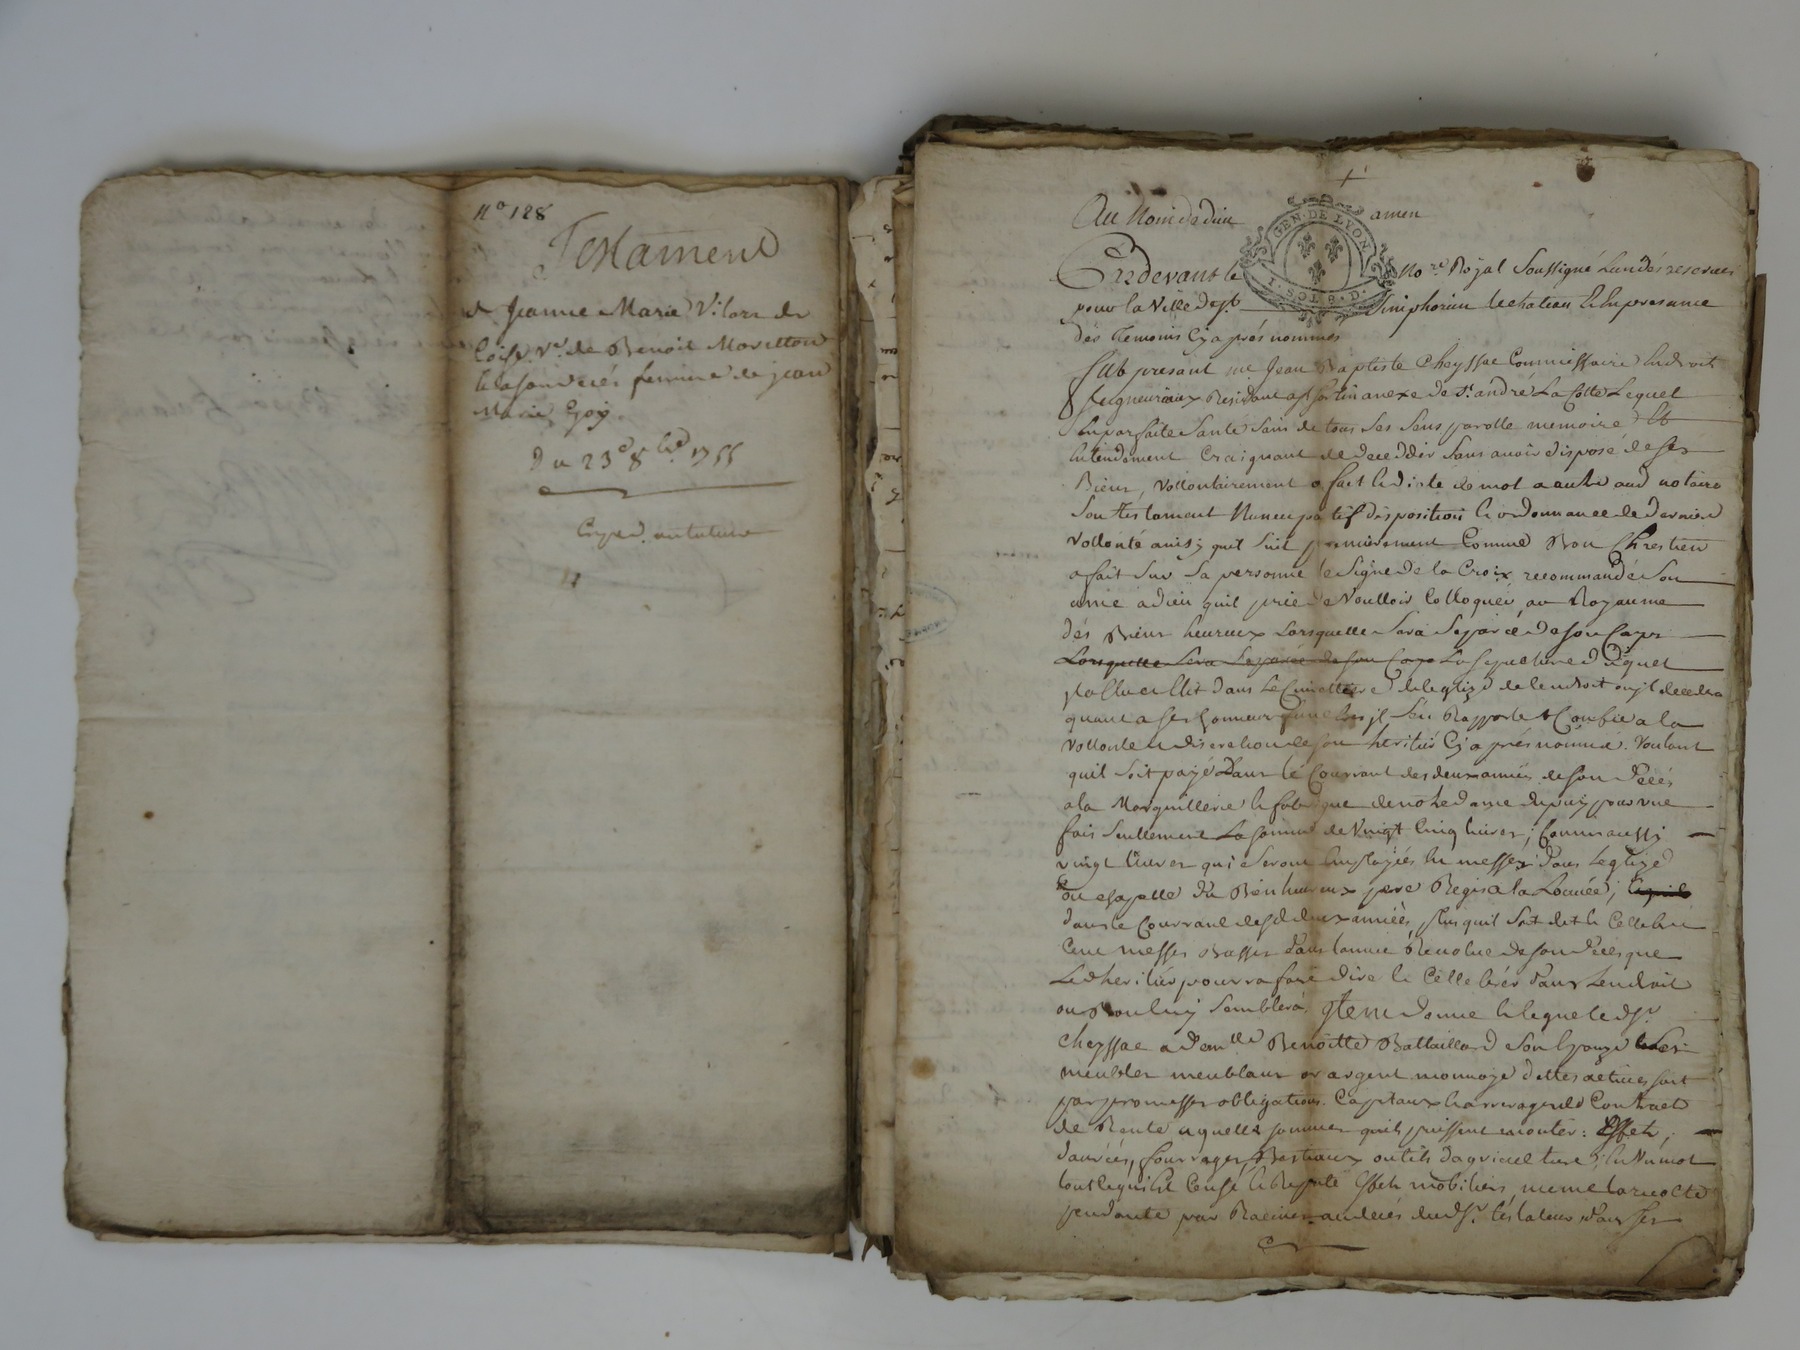 No 128
Testament
de Jeanne Marie Vilars de
Loise Ve. de Benoit Moretton
femme de jean
Marie Goy.
Du 23e 8bre 1755
Exped. en
Au Nom de dieu amen
GEN. DE LYON
1. SOL 8. D.
Pardevant le Nore. Royal Soussigné Lun des reservés
pour la Ville de St. Simphorien le chateau & En presance
des Temoins Cy après nommés
fut présant sr. Jean Baptiste Cheyssac Commissaire En droits
seigneuriaux Residant a annexe de st. andré La Côtte Lequel
En parfaite Santé Sain de tous Ses Sens parolle memoire Et
Entendement Craignant de deceddér Sans avoir disposé de ses
Biens, Vollontairement a fait & dicté de mot a autre aud notaire
Son testament Nuncupatif disposition & ordonnance de derniere
Vollonté ainsy quil Suit premierement Comme Bon Chrestien
a fait Sur Sa personne le Signe de la Croix, recommandé Son
ame a dieu quil prie de Voulloir Colloquér au Royaume
dés Bien heureux Lorsquelle Sera Separée de son Corps
Lorsquelle Sera Separée de son Corps La sepulture duquel
Il a Eslu dans Le Cimettiere de leglize de lendroit ou jl decedera
quant a ses honneurs funebres jl Sen Rapporte & Confie a la
vollonte & discretion de son heritiér Cy après nommé. Voulant
quil Soit payé Dans le Courrant des deux années de son Décés
a la Marguillerie & fabrique de notre dame du puiz pour une
fois Seullement La Somme de Vingt Cinq livres; Comme aussy
vingt livres qui Seront Employés En messes dans Leglize
ou chapelle du Bienheureux pere Regis a la Louvée;
dans le Courrant desd deux années, plus quil Soit dit & Cellebré
Cent messes Basses dans lannée Revolue de son Décés que
Led heritiér pourra faire dire & Cellebrér dans Lendroit
ou Bon luy Semblera, Item donne & legue led sr.
Cheyssac a demlle Benoitte Battaillard Son Epouze Ses
meubles meublans or argent monnoyé dettes actives soit
par promesses obligations. Capitaux & arrerages de Contract
de Rente a quelle sommes quils puissent monter: Effets,
danrées, fourrages, Bestiaux outils dagriculture; En Un mot
tout Ce qui Est Censé & Reputé Effets mobiliers, meme la recolte
pendante par Racines au decés dud sr. testateur dans ses